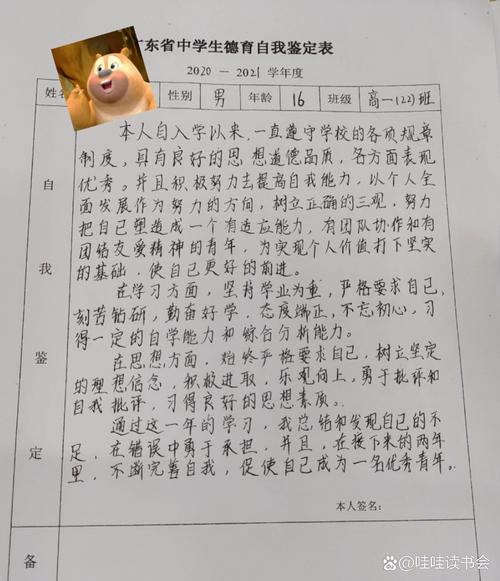 广东省中学生德育自我鉴定表
2020 — 2021 学年度
姓名 性别 男 年龄 16 班级 高一(22)班
自我鉴定
本人自入学以来,一直遵守学校的各项规章
制度,具有良好的思想道德品质,各方面表现
优秀。并且积极努力去提高自我能力,以个人全
面发展作为努力的方向,树立正确的三观,努力
把自己塑造成一个有适应能力,有团队协作和有
团结友爱精神的青年,为实现个人价值打下坚实
的基础,使自己更好的前进。
在学习方面,坚持学业为重,严格要求自己,
刻苦钻研,勤奋好学,态度端正,不忘初心,习
得一定的自学能力和综合分析能力。
在思想方面,始终严格要求自己,树立坚定
的理想信念,积极进取,乐观向上,勇于批评和
自我批评,习得良好的思想素质。
通过这一年的学习,我总结和发现自己的不
足,在错误中勇于承担,并且,在接下来的两年
里,不断完善自我,促使自己成为一名优秀青年。
本人签名:
备
@哇哇读书会